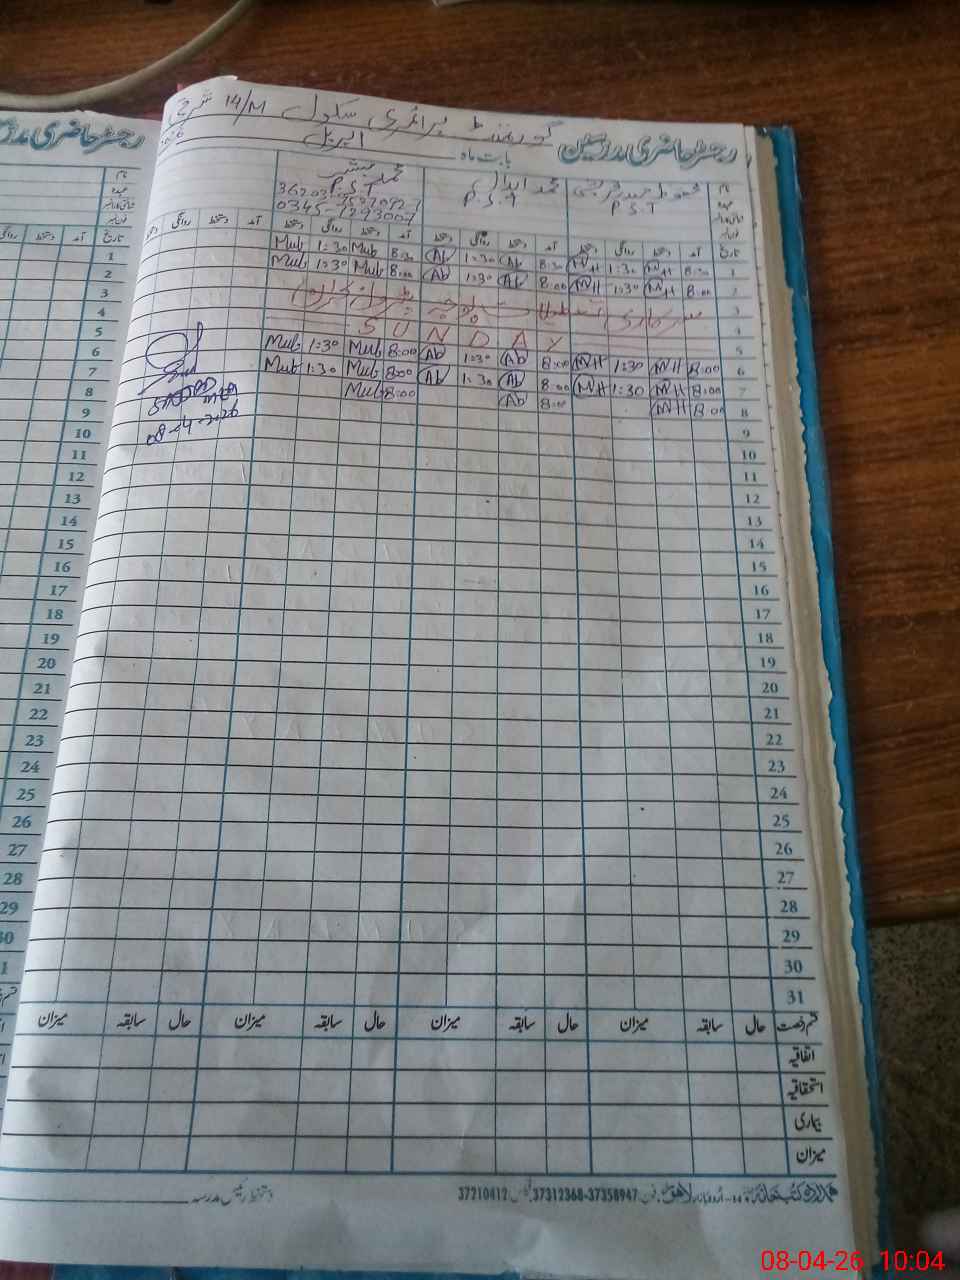 گورنمنٹ پرائمری سکول 14/M شرح
رجسٹر حاضری مدرسین بابت ماہ اپریل
نام محمد مبشر محمد ابدال
عہدہ P.S.T P.S.T P.S.T
0345-7293007
تاریخ آمد دستخط روانگی دستخط آمد دستخط روانگی دستخط آمد دستخط روانگی دستخط آمد دستخط روانگی
1 8:30 MH 1:30 MH 8:30 Ab 1:30 Ab 8:30 Mub 1:30 Mub
2 8:00 MH 1:30 MH 8:00 Ab 1:30 Ab 8:00 Mub 1:30 Mub
3 سرکاری تعطیل
4
5 SUNDAY
6 8:00 MH 1:30 MH 8:00 Ab 1:30 Ab 8:00 Mub 1:30 Mub
7 8:00 MH 1:30 MH 8:00 Ab 1:30 Ab 8:00 Mub 1:30 Mub
8 8:00 MH 8:00 Ab 8:00 Mub
08-4-2026
9
10
11
12
13
14
15
16
17
18
19
20
21
22
23
24
25
26
27
28
29
30
31
قسم رخصت حال سابقہ میزان حال سابقہ میزان حال سابقہ میزان حال سابقہ میزان
اتفاقیہ
استحقاقیہ
بیماری
میزان
اردو بازار لاہور فون 37358947-37312368 فیکس 37210412
دستخط رئیس مدرسہ
08-04-26 10:04